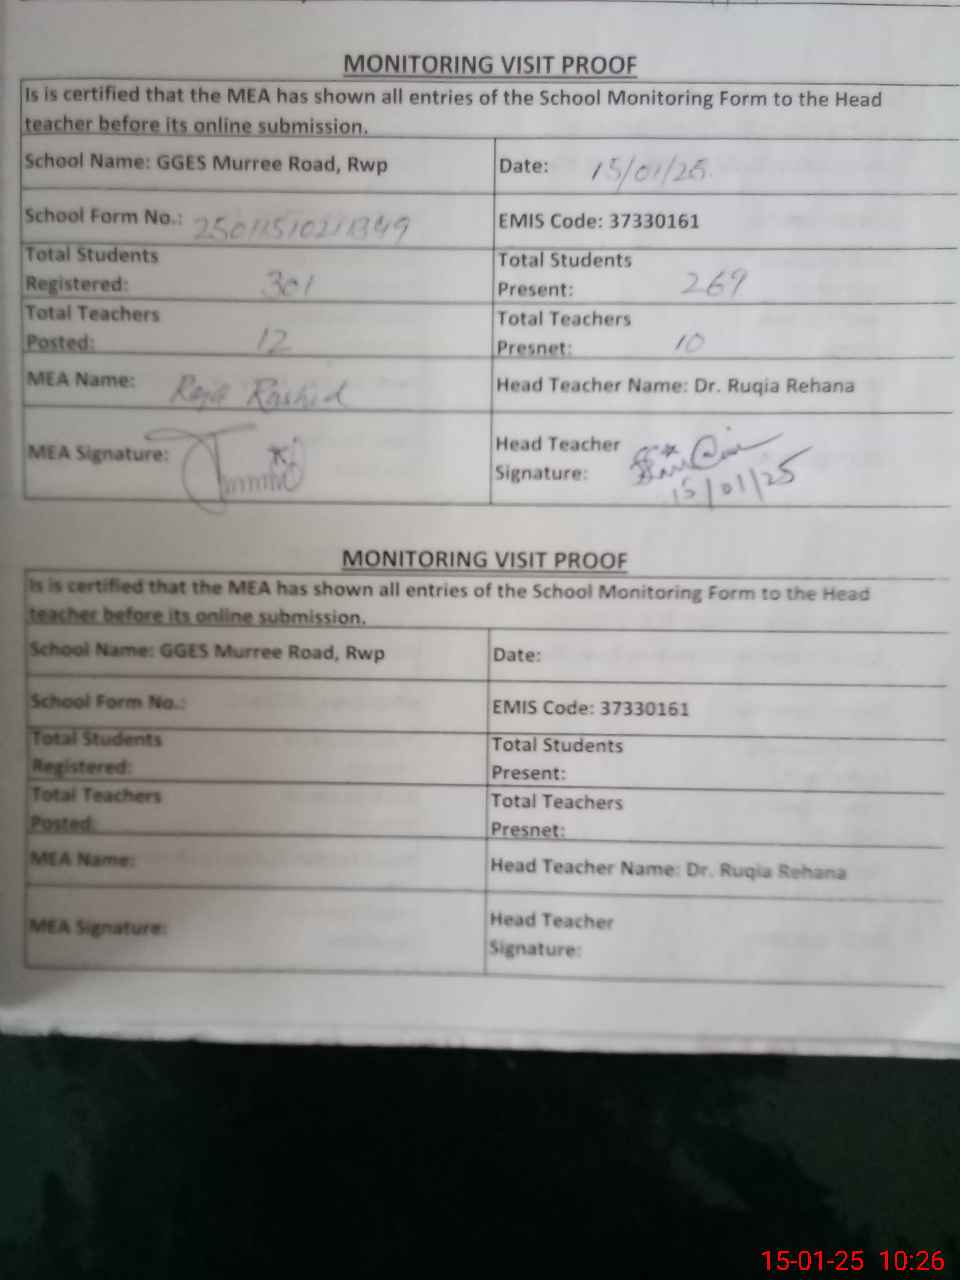 MONITORING VISIT PROOF
Is is certified that the MEA has shown all entries of the School Monitoring Form to the Head
teacher before its online submission.
School Name: GGES Murree Road, Rwp
Date: 15/01/25
School Form No.:
EMIS Code: 37330161
Total Students
Registered: 301
Total Students
Present: 269
Total Teachers
Posted: 12
Total Teachers
Presnet: 10
MEA Name: Raja Rashid
Head Teacher Name: Dr. Ruqia Rehana
MEA Signature:
Head Teacher
Signature:
15/01/25
MONITORING VISIT PROOF
Is is certified that the MEA has shown all entries of the School Monitoring Form to the Head
teacher before its online submission.
School Name: GGES Murree Road, Rwp
Date:
School Form No.:
EMIS Code: 37330161
Total Students
Registered:
Total Students
Present:
Total Teachers
Posted:
Total Teachers
Presnet:
MEA Name:
Head Teacher Name: Dr. Ruqia Rehana
MEA Signature:
Head Teacher
Signature:
15-01-25 10:26